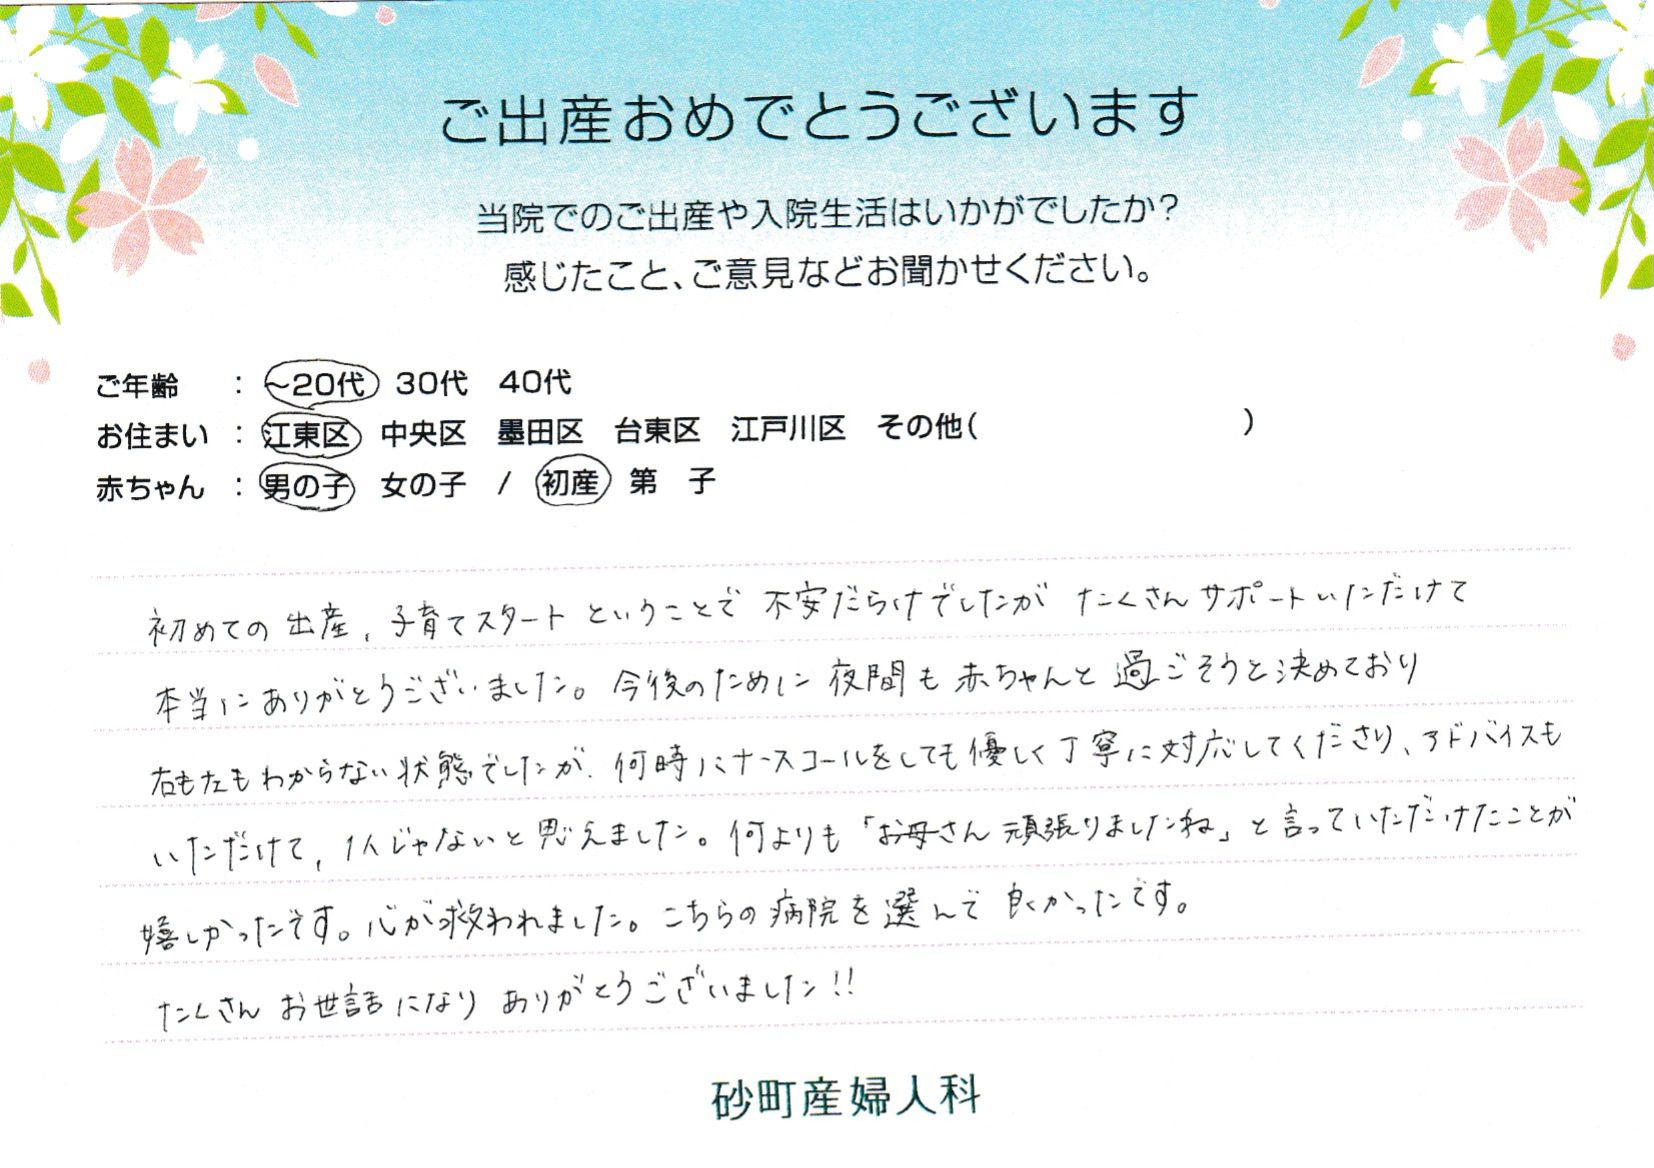 ご出産おめでとうございます
当院でのご出産や入院生活はいかがでしたか?
感じたこと、ご意見などお聞かせください。
ご年齢 : ～20代 30代 40代
お住まい : 江東区 中央区 墨田区 台東区 江戸川区 その他( )
赤ちゃん : 男の子 女の子 / 初産 第 子
初めての出産、子育てスタートということで不安だらけでしたが たくさんサポートいただけて
本当にありがとうございました。今後のために夜間も赤ちゃんと過ごそうと決めており
右も左もわからない状態でしたが、何時にナースコールをしても優しく丁寧に対応してくださり、アドバイスも
いただけて、1人じゃないと思えました。何よりも「お母さん頑張りましたね」と言っていただけたことが
嬉しかったです。心が救われました。こちらの病院を選んで良かったです。
たくさんお世話になり ありがとうございました!!
砂町産婦人科